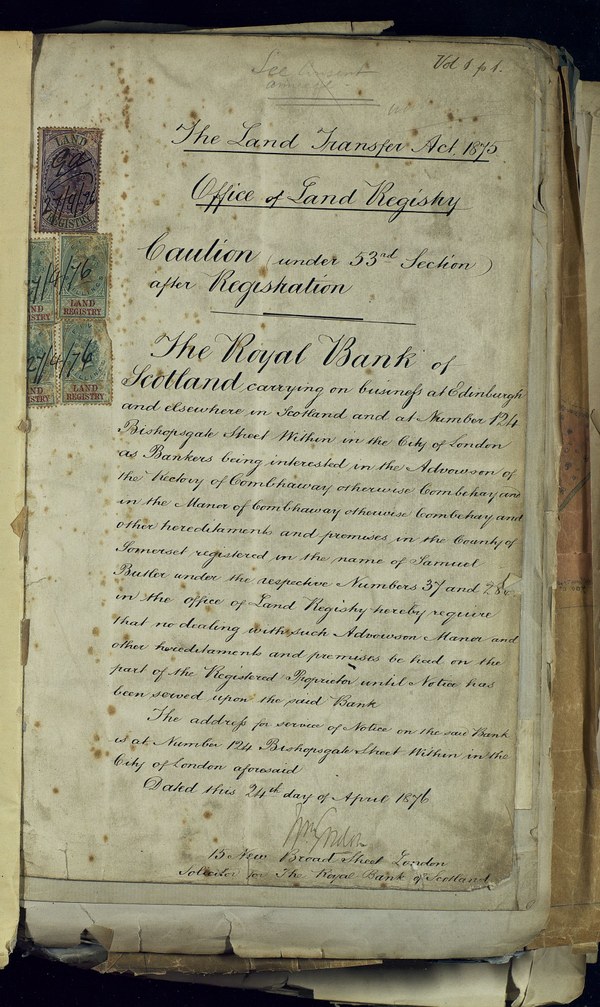 Vol 1 p 1.
See Consent
annexed
The Land Transfer Act 1875
Office of Land Registry
Caution (under 53rd Section)
after Registration
The Royal Bank of
Scotland carrying on business at Edinburgh
and elsewhere in Scotland and at Number 124
Bishopsgate Street Within in the City of London
as Bankers being interested in the Advowson of
the Rectory of Combhaway otherwise Combehay and
in the Manor of Combhaway otherwise Combehay and
other hereditaments and premises in the County of
Somerset registered in the name of Samuel
Butler under the respective Numbers 37 and
in the office of Land Registry hereby require
that no dealing with such Advowson Manor and
other hereditaments and premises be had on the
part of the Registered Proprietor until Notice has
been served upon the said Bank
The address for service of Notice on the said Bank
is at Number 124 Bishopsgate Street Within in the
City of London aforesaid
Dated this 24th day of April 1876
15 New Broad Street London
Solicitor for The Royal Bank of Scotland
LAND
REGISTRY
7/4/76
LAND
REGISTRY
27/4/76
LAND
REGISTRY